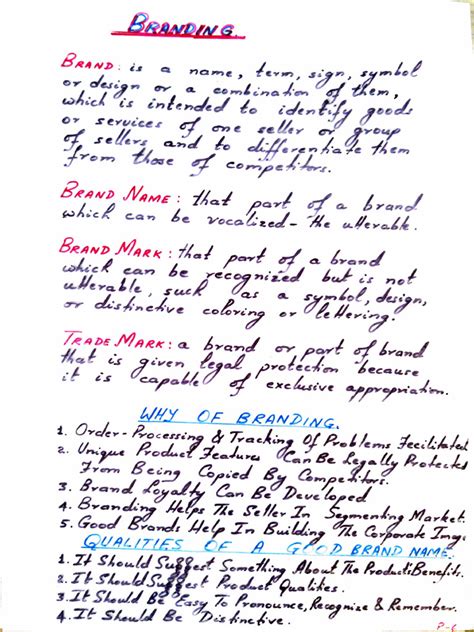 BRANDING.
BRAND: is a name, term, sign, symbol
or design or a combination of them,
which is intended to identify goods
or services of one seller or group
of sellers and to differentiate them
from those of competitors.
BRAND NAME: that part of a brand
which can be vocalized - the utterable.
BRAND MARK: that part of a brand
which can be recognized but is not
utterable, such as a symbol, design,
or distinctive coloring or lettering.
TRADE MARK: a brand or part of brand
that is given legal protection because
it is capable of exclusive appropriation.
WHY OF BRANDING.
1. Order-Processing & Tracking Of Problems Fecilitated
2. Unique Product Features Can Be Legally Protected
From Being Copied By Competitors.
3. Brand Loyalty Can Be Developed
4. Branding Helps The Seller In Segmenting Market.
5. Good Brands Help In Building The Corporate Imag
QUALITIES OF A GOOD BRAND NAME.
1. It Should Suggest Something About The Product:Benefits.
2. It Should Suggest Product Qualities.
3. It Should Be Easy To Pronounce, Recognize & Remember.
4. It Should Be Distinctive.
P-6